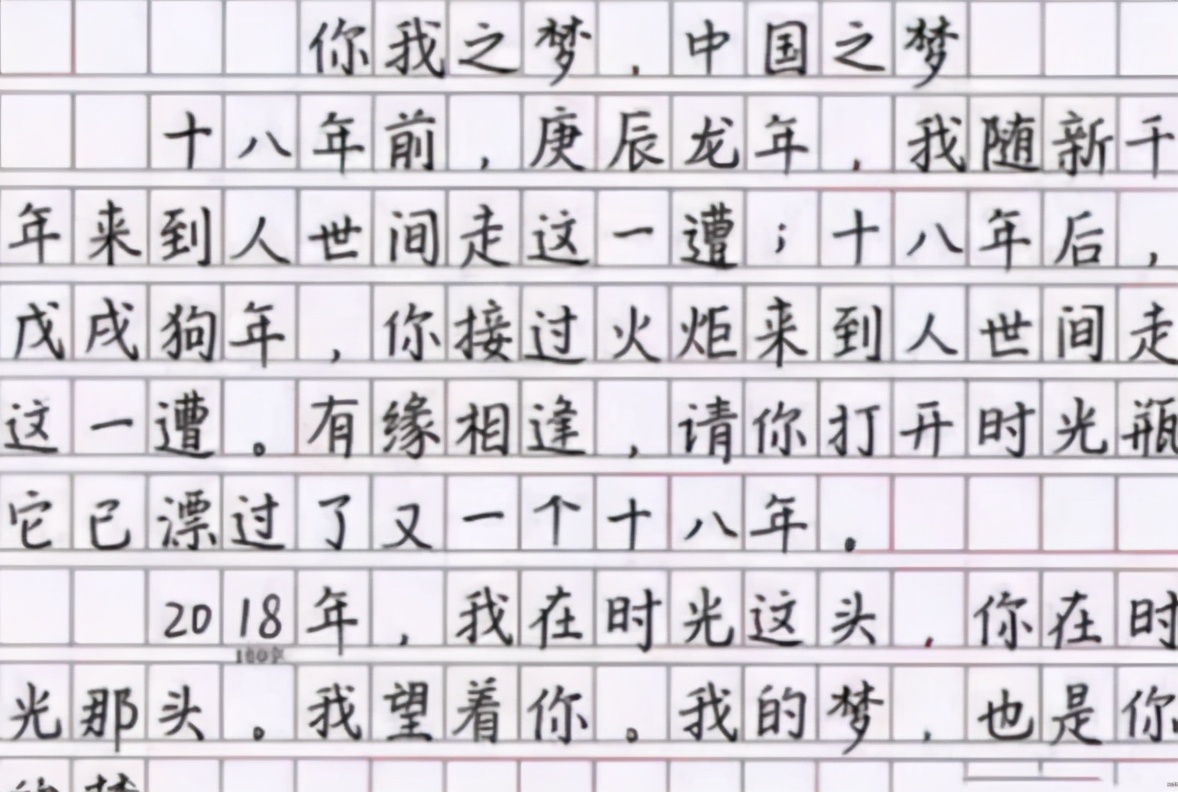 你我之梦，中国之梦
十八年前，庚辰龙年，我随新千
年来到人世间走这一遭；十八年后，
戊戌狗年，你接过火炬来到人世间走
这一遭。有缘相逢，请你打开时光瓶
它已漂过了又一个十八年。
2018年，我在时光这头，你在时
光那头。我望着你。我的梦，也是你
的梦